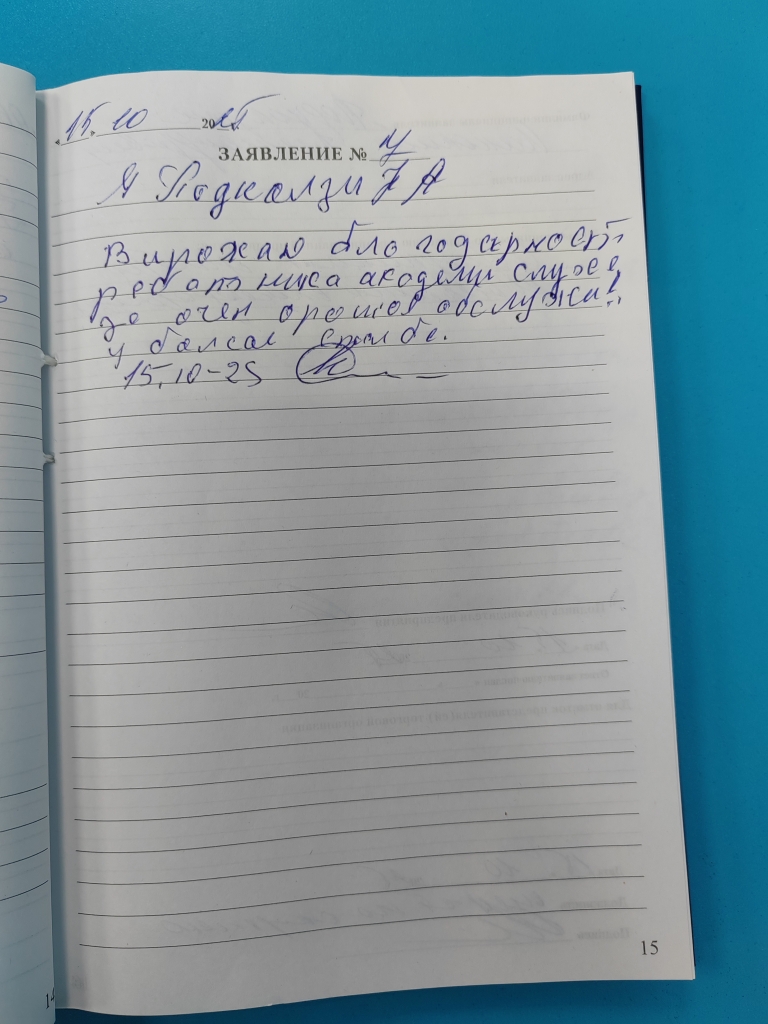 15.10 2025
ЗАЯВЛЕНИЕ № 4
Я Подколзи А
Виражаю бло годарност
работника академи служе
за очен орошое обслужи
и балсои
15.10-25
15